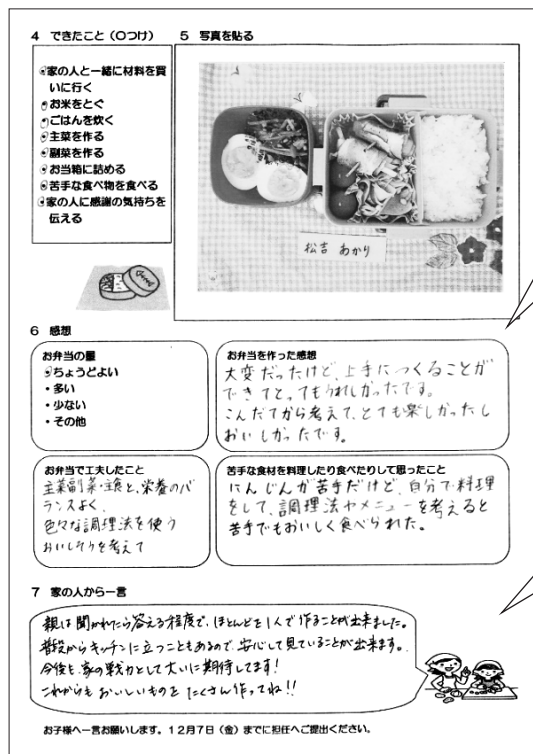 4 できたこと（○つけ）
・家の人と一緒に材料を買
いに行く
・お米をとぐ
・ごはんを炊く
・主菜を作る
・副菜を作る
・お当箱に詰める
・苦手な食べ物を食べる
・家の人に感謝の気持ちを
伝える
5 写真を貼る
松吉 あかり
6 感想
お弁当の量
・ちょうどよい
・多い
・少ない
・その他
お弁当を作った感想
大変だったけど、上手につくることが
できてとってもうれしかったです。
こんだてから考えて、とても楽しかったし
おいしかったです。
お弁当で工夫したこと
主菜副菜・主食と、栄養のバ
ランスよく、
色々な調理法を使う
おいしそうを考えて
苦手な食材を料理したり食べたりして思ったこと
にんじんが苦手だけど、自分で料理
をして、調理法やメニューを考えると
苦手でもおいしく食べられた。
7 家の人から一言
親は聞かれたら答える程度で、ほとんどを1人で作ることが出来ました。
普段からキッチンに立つこともあるので、安心して見ていることが出来ます。
今後も、家の戦力として大いに期待してます！
これからもおいしいものをたくさん作ってね！！
お子様へ一言お願いします。12月7日（金）までに担任へご提出ください。